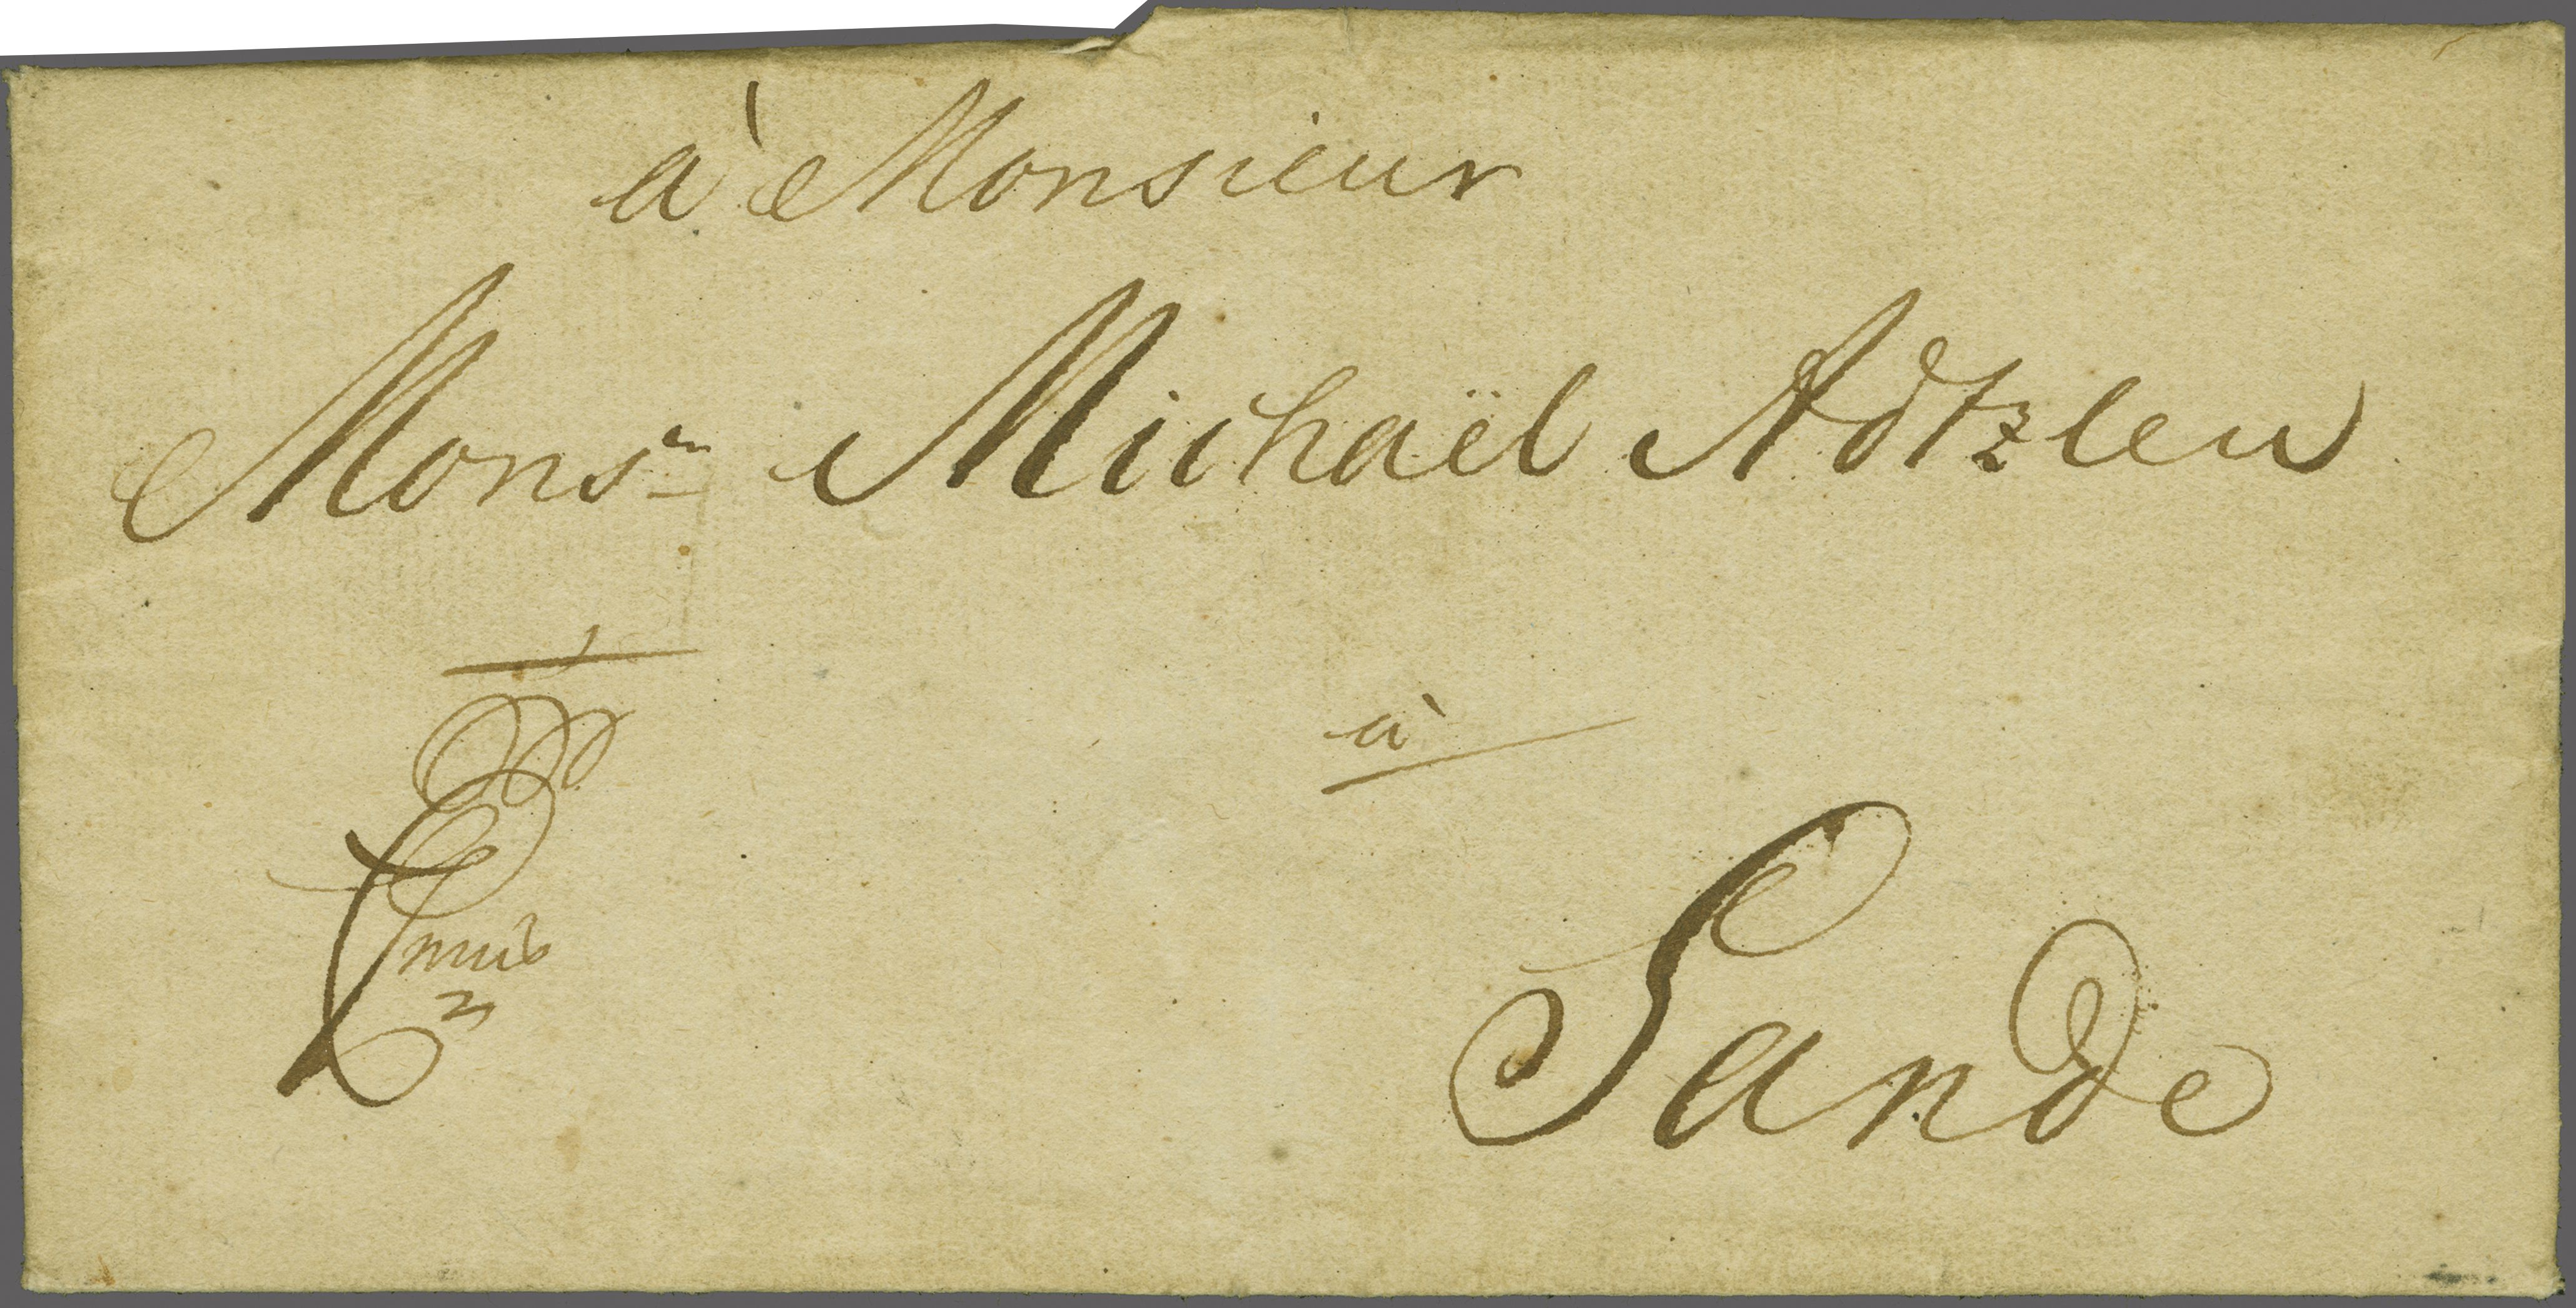 à Monsieur
Monsr Michaël Adtzlew
à
Sande